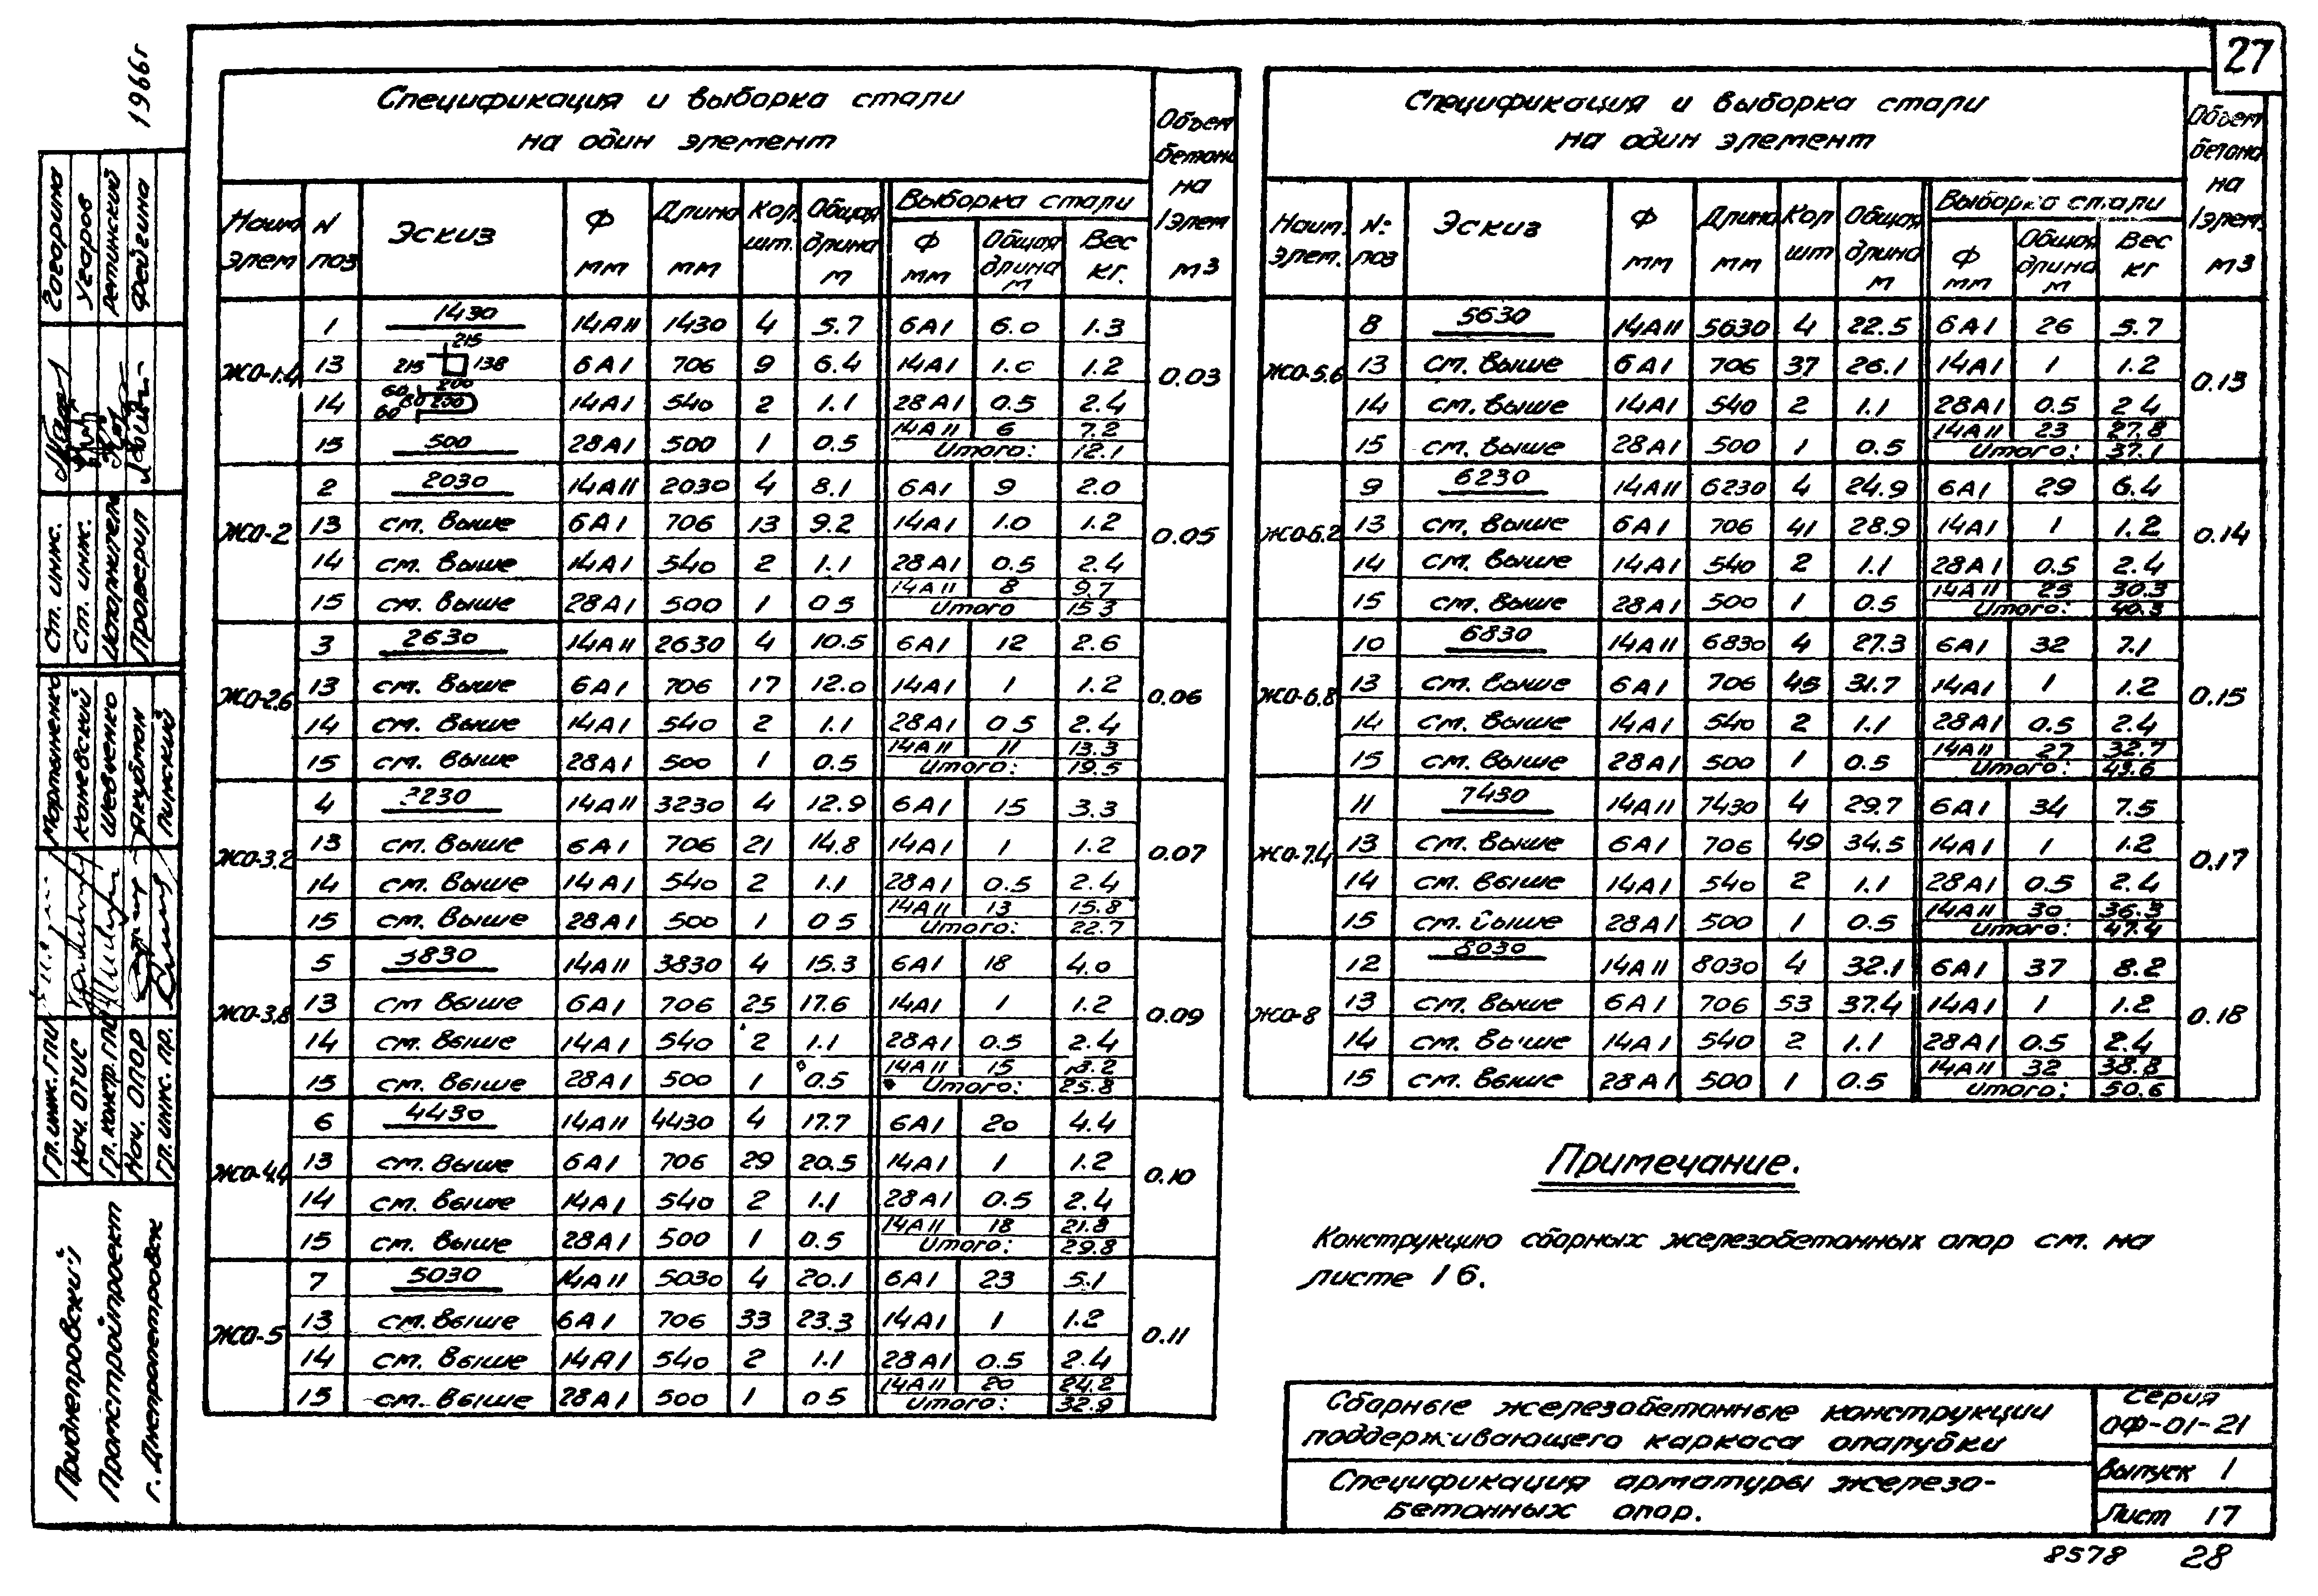 27
1966г
Спецификация и выборка стали
на один элемент
Объем бетона на 1 элем м3
Наим элем
N поз
Эскиз
Ф мм
Длина мм
Кол. шт.
Общая длина м
Выборка стали
Ф мм
Общая длина м
Вес кг.
ЖО-1.4 0.03
1 1430 14АII 1430 4 5.7 6АI 6.0 1.3
13 215 215 138 6АI 706 9 6.4 14АI 1.0 1.2
14 60 80 60 200 200 14АI 540 2 1.1 28АI 0.5 2.4
15 500 28АI 500 1 0.5 14АII 6 7.2
Итого: 12.1
ЖО-2 0.05
2 2030 14АII 2030 4 8.1 6АI 9 2.0
13 см. выше 6АI 706 13 9.2 14АI 1.0 1.2
14 см. выше 14АI 540 2 1.1 28АI 0.5 2.4
15 см. выше 28АI 500 1 0 5 14АII 8 9.7
Итого 15.3
ЖО-2.6 0.06
3 2630 14АII 2630 4 10.5 6АI 12 2.6
13 см. выше 6АI 706 17 12.0 14АI 1 1.2
14 см. выше 14АI 540 2 1.1 28АI 0 5 2.4
15 см. выше 28АI 500 1 0.5 14АII 11 13.3
Итого: 19.5
ЖО-3.2 0.07
4 3230 14АII 3230 4 12.9 6АI 15 3.3
13 см. выше 6АI 706 21 14.8 14АI 1 1.2
14 см. выше 14АI 540 2 1.1 28АI 0.5 2.4
15 см. выше 28АI 500 1 0 5 14АII 13 15.8
Итого: 22.7
ЖО-3.8 0.09
5 3830 14АII 3830 4 15.3 6АI 18 4.0
13 см выше 6АI 706 25 17.6 14АI 1 1.2
14 см. выше 14АI 540 2 1.1 28АI 0.5 2.4
15 см. выше 28АI 500 1 0.5 14АII 15 18.2
Итого: 25.8
ЖО-4.4 0.10
6 4430 14АII 4430 4 17.7 6АI 20 4.4
13 см. выше 6АI 706 29 20.5 14АI 1 1.2
14 см. выше 14АI 540 2 1.1 28АI 0.5 2.4
15 см. выше 28АI 500 1 0.5 14АII 18 21.8
Итого: 29.8
ЖО-5 0.11
7 5030 14АII 5030 4 20.1 6АI 23 5.1
13 см. выше 6АI 706 33 23.3 14АI 1 1.2
14 см. выше 14АI 540 2 1.1 28АI 0.5 2.4
15 см. выше 28АI 500 1 0 5 14АII 20 24.2
Итого: 32.9
Спецификация и выборка стали
на один элемент
Объем бетона на 1 элем. м3
Наим. элем.
№: поз
Эскиз
Ф мм
Длина мм
Кол шт
Общая длина м
Выборка стали
Ф мм
Общая длина м
Вес кг
ЖО-5.6 0.13
8 5630 14АII 5630 4 22.5 6АI 26 5.7
13 см. выше 6АI 706 37 26.1 14АI 1 1.2
14 см. выше 14АI 540 2 1.1 28АI 0.5 2 4
15 см. выше 28АI 500 1 0.5 14АII 23 27.8
Итого: 37.1
ЖО-6.2 0.14
9 6230 14АII 6230 4 24.9 6АI 29 6.4
13 см. выше 6АI 706 41 28.9 14АI 1 1.2
14 см. выше 14АI 540 2 1.1 28АI 0.5 2.4
15 см. выше 28АI 500 1 0.5 14АII 25 30.3
Итого: 40.3
ЖО-6.8 0.15
10 6830 14АII 6830 4 27.3 6АI 32 7.1
13 см. выше 6АI 706 45 31.7 14АI 1 1.2
14 см. выше 14АI 540 2 1.1 28АI 0.5 2.4
15 см. выше 28АI 500 1 0.5 14АII 27 32.7
Итого: 43.6
ЖО-7.4 0.17
11 7430 14АII 7430 4 29.7 6АI 34 7.5
13 см. выше 6АI 706 49 34.5 14АI 1 1.2
14 см. выше 14АI 540 2 1.1 28АI 0.5 2.4
15 см. выше 28АI 500 1 0.5 14АII 30 36.3
Итого: 47.4
ЖО-8 0.18
12 8030 14АII 8030 4 32.1 6АI 37 8.2
13 см. выше 6АI 706 53 37.4 14АI 1 1.2
14 см. выше 14АI 540 2 1.1 28АI 0.5 2.4
15 см. выше 28АI 500 1 0.5 14АII 32 38.8
Итого: 50.6
Примечание.
Конструкцию сборных железобетонных опор см. на
листе 16.
Сборные железобетонные конструкции
поддерживающего каркаса опалубки
Спецификация арматуры железо-
бетонных опор.
Серия
ОФ-01-21
Выпуск 1
Лист 17
8578 28
Ст. инж. Загорина
Ст. инж. Угаров
Исполнитель Репинский
Проверил Фейгина
Гл. инж. ГПИ Мартыненко
Нач. ОТИС Каневский
Гл. констр. ГПИ Шевченко
Нач. ОПОР Якубтан
Гл. инж. пр. Пинский
Приднепровский
Промстройпроект
г. Днепропетровск